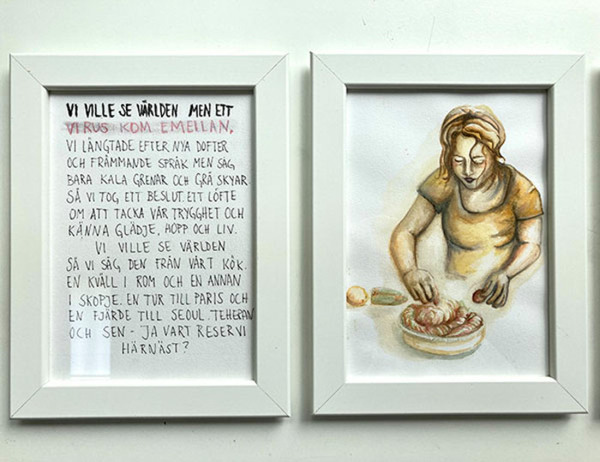 VI VILLE SE VÄRLDEN MEN ETT
VIRUS KOM EMELLAN.
VI LÄNGTADE EFTER NYA DOFTER
OCH FRÄMMANDE SPRÅK MEN SÅG
BARA KALA GRENAR OCH GRÅ SKYAR
SÅ VI TOG ETT BESLUT. ETT LÖFTE
OM ATT TACKA VÅR TRYGGHET OCH
KÄNNA GLÄDJE, HOPP OCH LIV.
VI VILLE SE VÄRLDEN
SÅ VI SÅG DEN FRÅN VÅRT KÖK.
EN KVÄLL I ROM OCH EN ANNAN
I SKOPJE. EN TUR TILL PARIS OCH
EN FJÄRDE TILL SEOUL. TEHERAN
OCH SEN - JA VART RESER VI
HÄRNÄST?